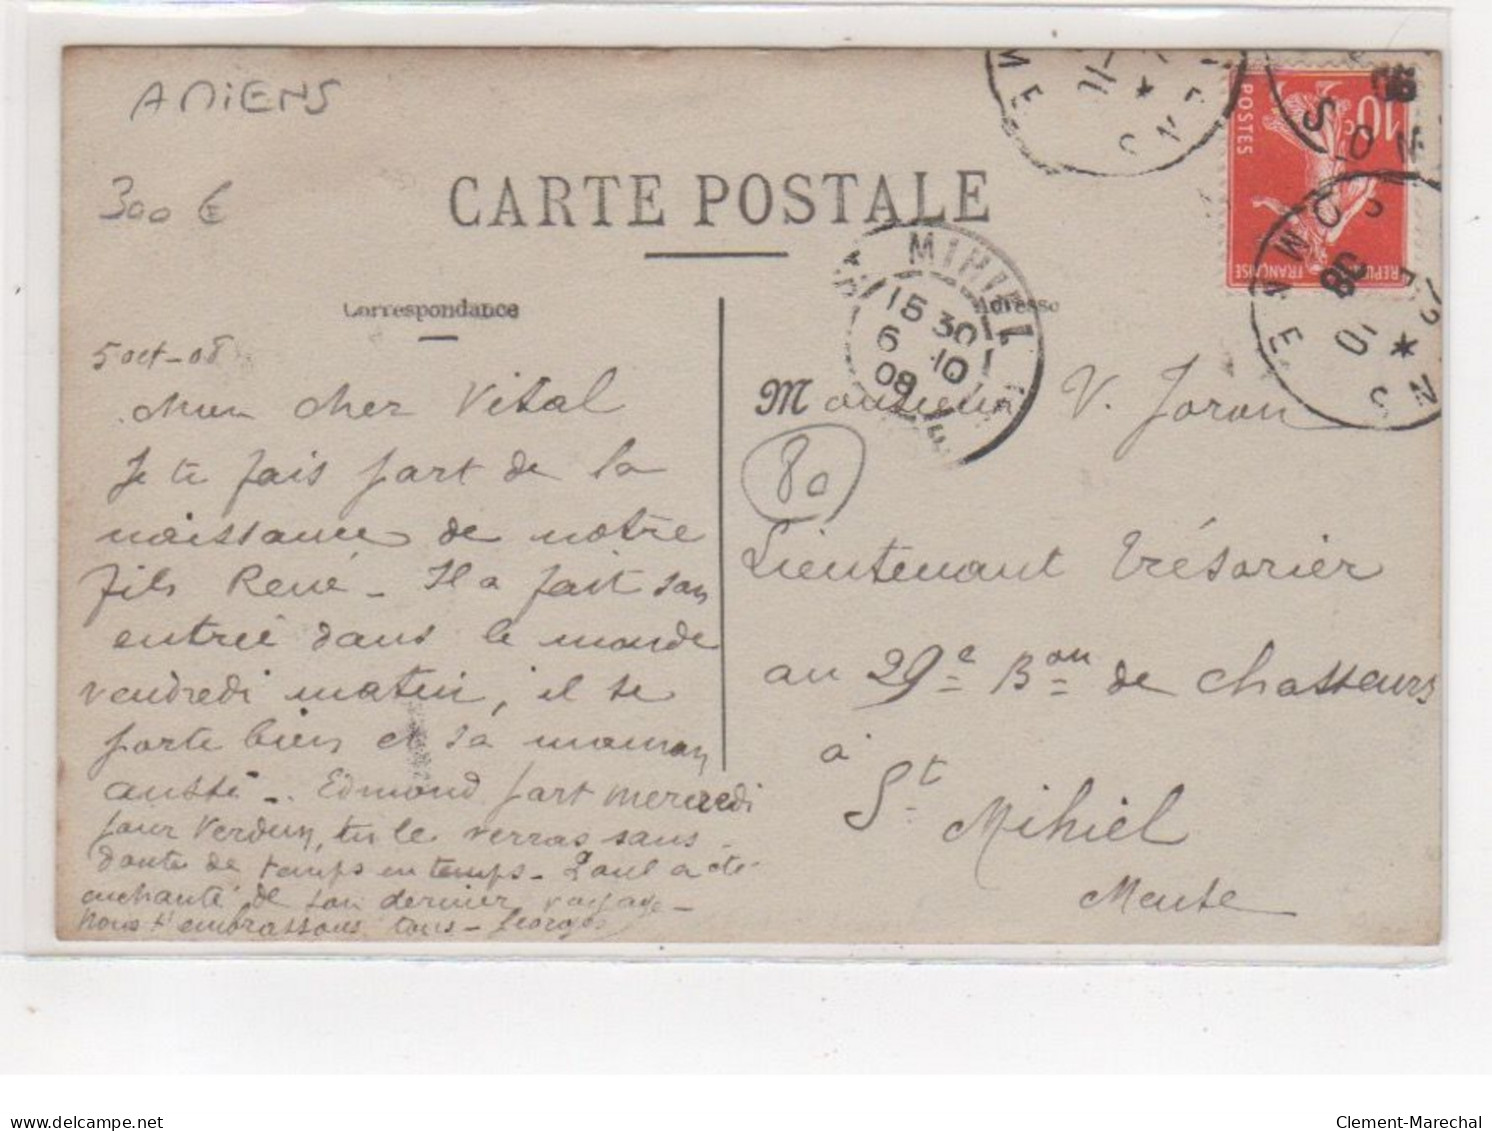 AMIENS
300 €
CARTE POSTALE
Correspondance
Adresse
MIHIEL
15 30
6 10
08
10c
POSTES
SOMME
SOMME
SOMME
5 oct - 08
Mon cher Vital
Je te fais part de la
naissance de notre
fils René - Il a fait son
entrée dans le monde
vendredi matin, il se
porte bien et sa maman
aussi -. Edmond part mercredi
pour Verdun, tu le verras sans
doute de temps en temps - Paul a été
enchanté de son dernier voyage -
Nous t'embrassons tous - Georges
Monsieur V. Joron
80
Lieutenant trésorier
au 29e Bon de chasseurs
à
St Mihiel
Meuse
delcampe.net
Clement-Marechal